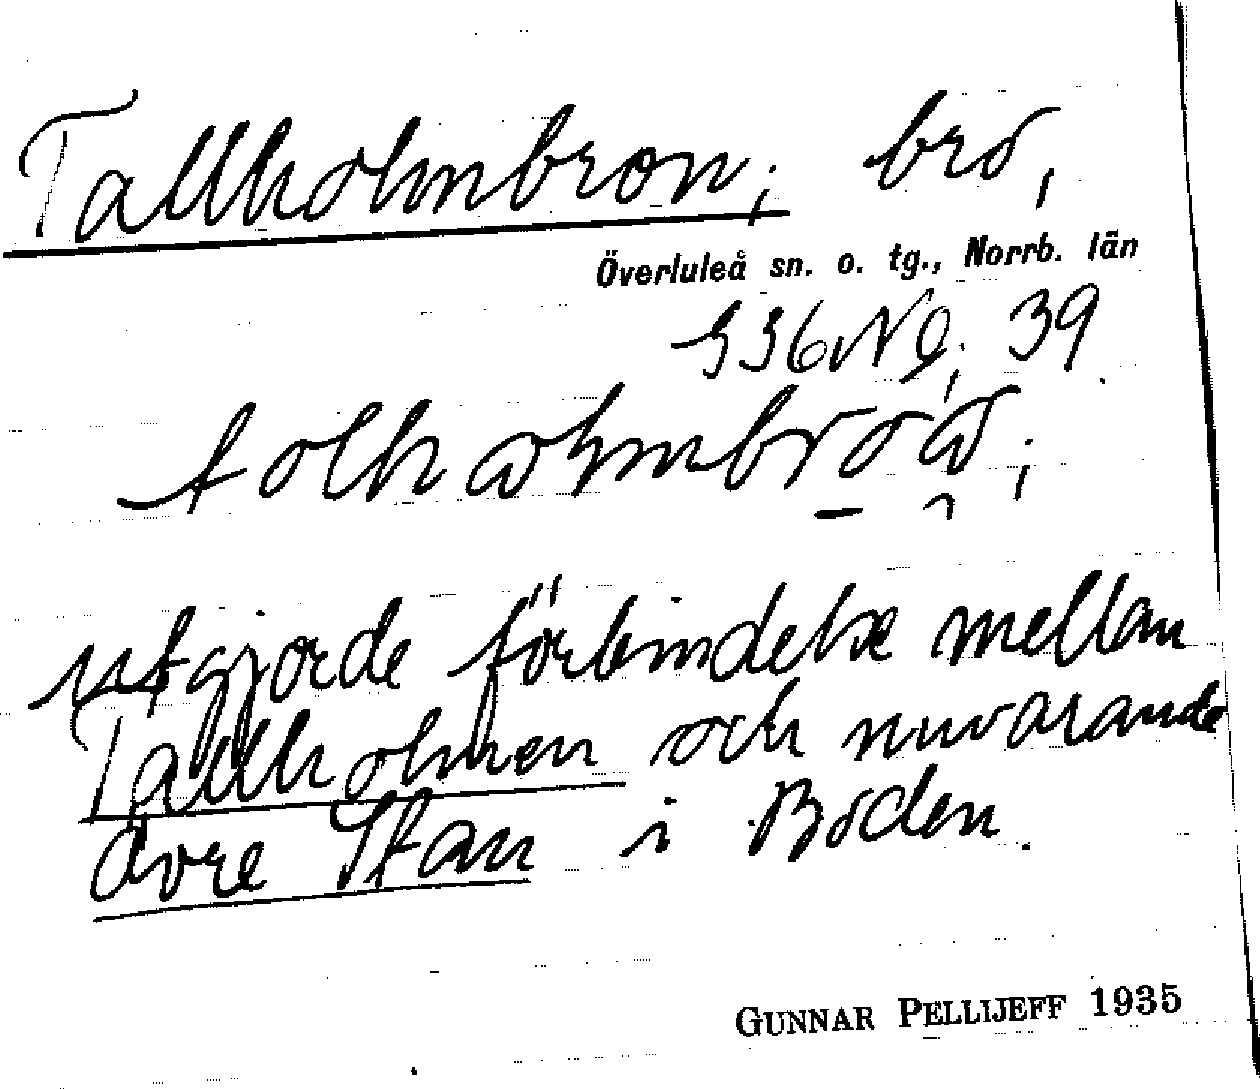 Tallholmbron; bro,
Överluleå sn. o. tg., Norrb. län
39
utgjorde förbindelse mellan
Tallholmen och nuvarande
övre Stan i Boden.
GUNNAR PELLIJEFF 1935